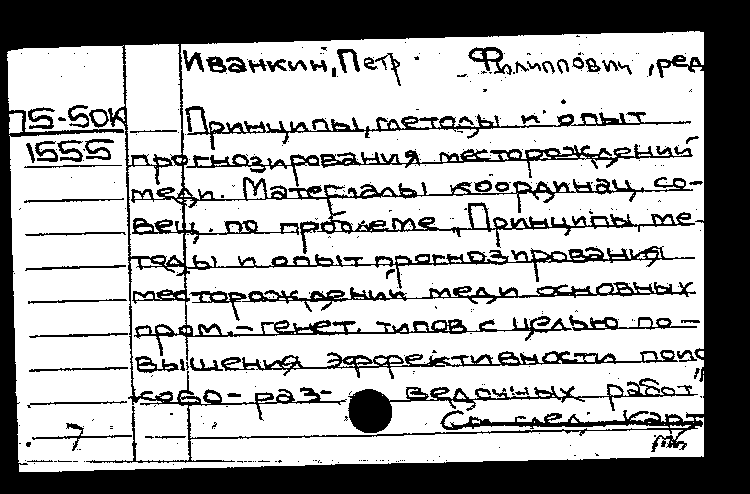 Иванкин, Петр Филиппович, ред
75-50к
1555
Принципы, методы и опыт
прогнозирования месторождений
меди. Материалы координац. со-
вещ. по проблеме „Принципы, ме-
тоды и опыт прогнозирования
месторождений меди основных
пром.-генет. типов с целью по-
вышения эффективности поис
ково-раз- ведочных работ"
См. след. карт
7